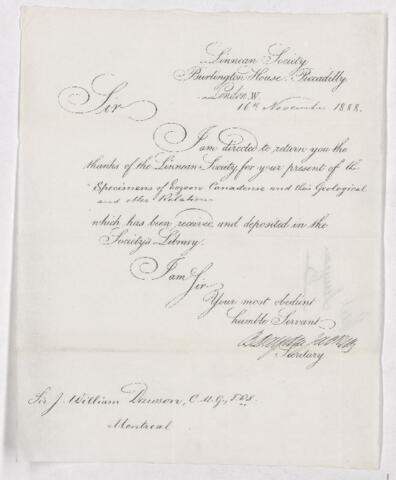 Linnean Society
Burlington House, Piccadilly
London. W.
16th November 1888.
Sir
I am directed to return you the
thanks of the Linnean Society for your present of the
"Specimens of Eozoon Canadense and their Geological
and other Relations
which has been received and deposited in the
Society's Library.
I am Sir
Your most obedient
humble Servant
Secretary
Sir J. William Dawson, C.M.G., F.R.S.
Montreal